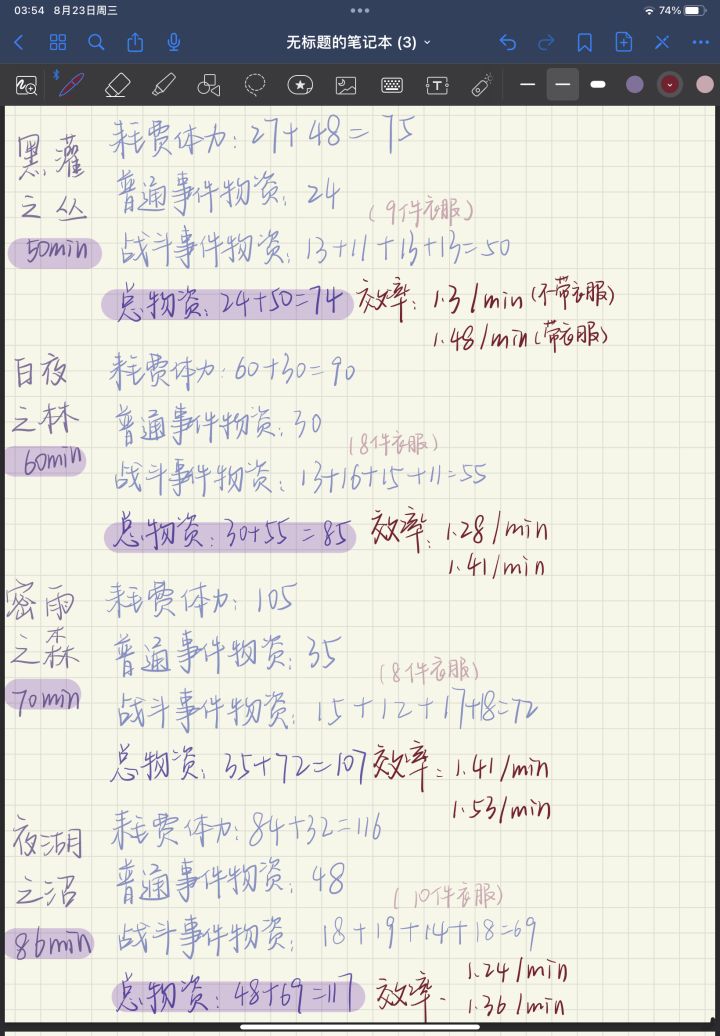 03:54 8月23日周三
74%
无标题的笔记本 (3)
黑灌之丛
50min
耗费体力: 27+48=75
普通事件物资: 24
(9件衣服)
战斗事件物资: 13+11+13+13=50
总物资: 24+50=74 效率: 1.31/min(不带衣服)
1.48/min(带衣服)
白夜之林
60min
耗费体力: 60+30=90
普通事件物资: 30
(8件衣服)
战斗事件物资: 13+16+15+11=55
总物资: 30+55=85 效率: 1.28/min
1.41/min
密雨之森
70min
耗费体力: 105
普通事件物资: 35
(8件衣服)
战斗事件物资: 15+12+17+18=72
总物资: 35+72=107 效率: 1.41/min
1.53/min
夜湖之沼
86min
耗费体力: 84+32=116
普通事件物资: 48
(10件衣服)
战斗事件物资: 18+19+14+18=69
总物资: 48+69=117 效率: 1.24/min
1.36/min